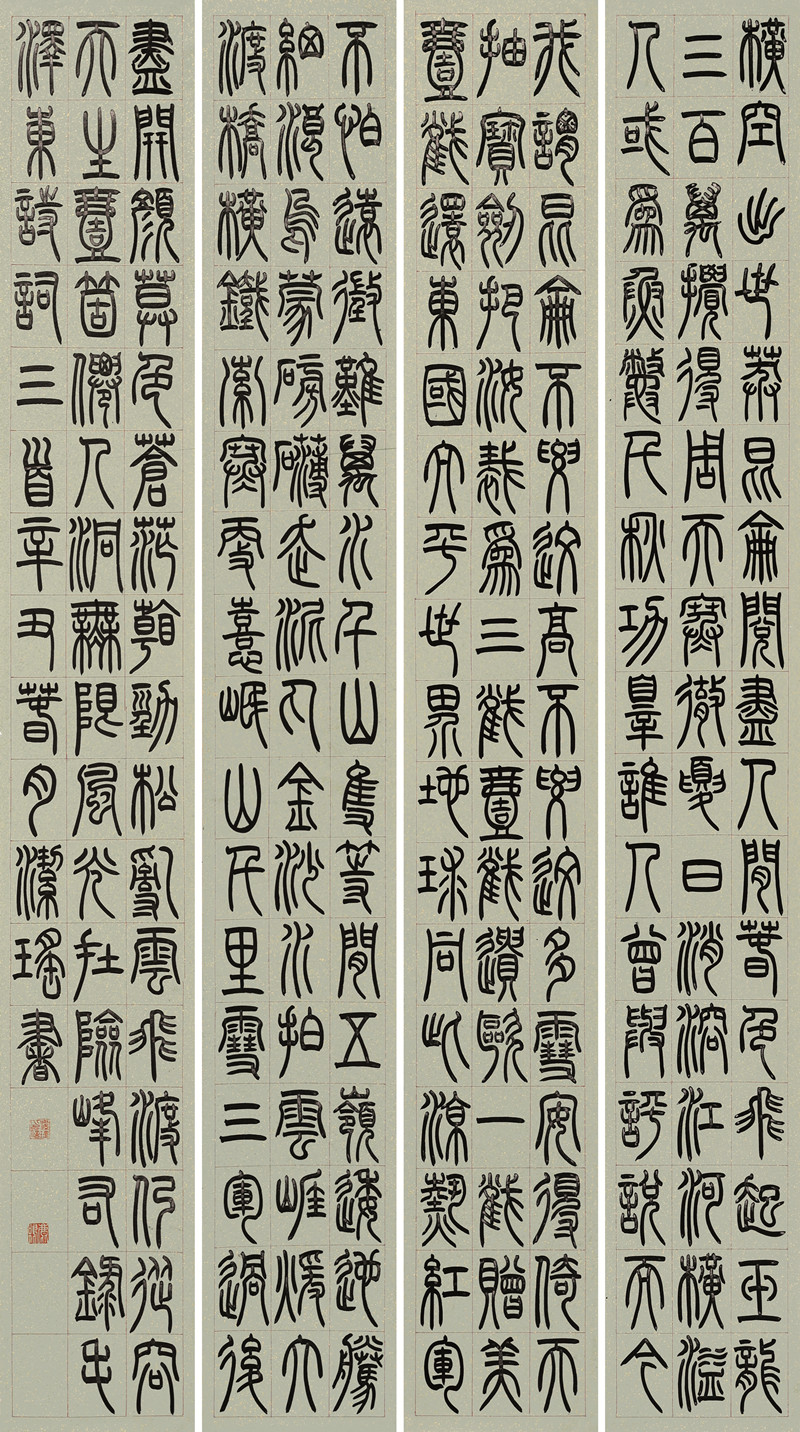 橫空出世莽昆侖閱盡人間春色飛起玉龍
三百萬攪得周天寒徹夏日消溶江河橫溢
人或爲魚鱉千秋功辠誰人曾與評說而今
我謂昆侖不要這高不要這多雪安得倚天
抽寶劍把汝裁爲三截壹截遺歐一截贈美
壹截還東國太平世界地球同此涼熱紅軍
不怕遠徵難萬水千山隻等閒五嶺逶迤騰
細浪烏蒙磅礴走泥丸金沙水拍雲崖暖大
渡橋橫鐵索寒更喜岷山千里雪三軍過後
盡開顏暮色蒼茫看勁松亂雲飛渡仍從容
天生壹箇僊人洞無限風光在險峰右錄毛
澤東詩詞三首辛丑春月潔瑤書